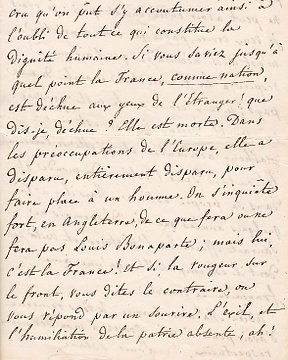 cru qu'on pût s'y accoutumer ainsi à
l'oubli de tout ce qui constitue la
dignité humaine. Si vous saviez jusqu'à
quel point la France, comme nation,
est déchue aux yeux de l'Étranger! que
dis-je, déchue? Elle est morte. Dans
les préoccupations de l'Europe, elle a
disparu, entièrement disparu, pour
faire place à un homme. On s'inquiète
fort, en Angleterre, de ce que fera ou ne
fera pas Louis Bonaparte; mais lui,
c'est la France! Et si, la rougeur sur
le front, vous dites le contraire, on
vous répond par un sourire. L'exil, et
l'humiliation de la patrie absente, ah!